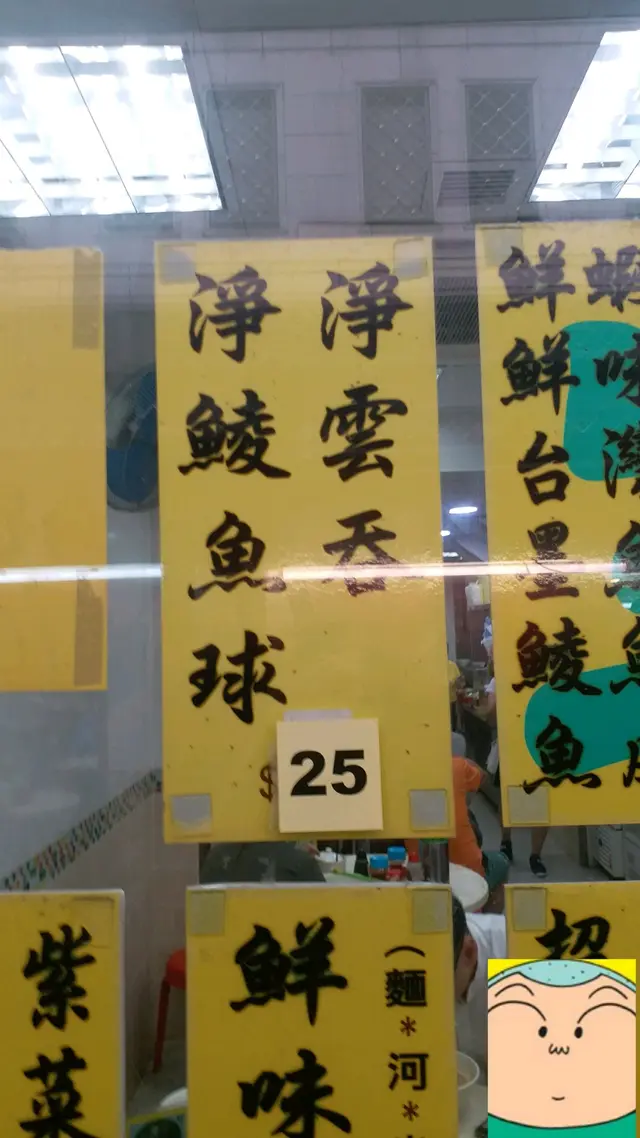 淨雲吞
淨鯪魚球
$25
鮮蝦
鮮味
台灣
墨魚
鯪魚
魚
紫菜
（麵*河*
鮮味
超